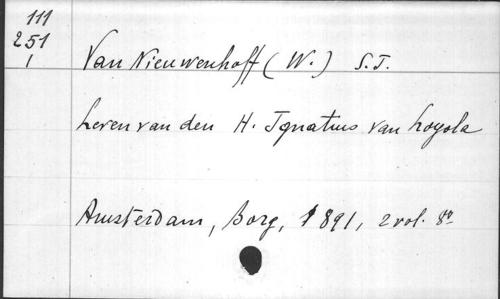 111
251
1
Van Nieuwenhoff (W.) S.J.
Leven van den H. Ignatius van Loyola
Amsterdam, Borg, 1891, 2 vol. 8º